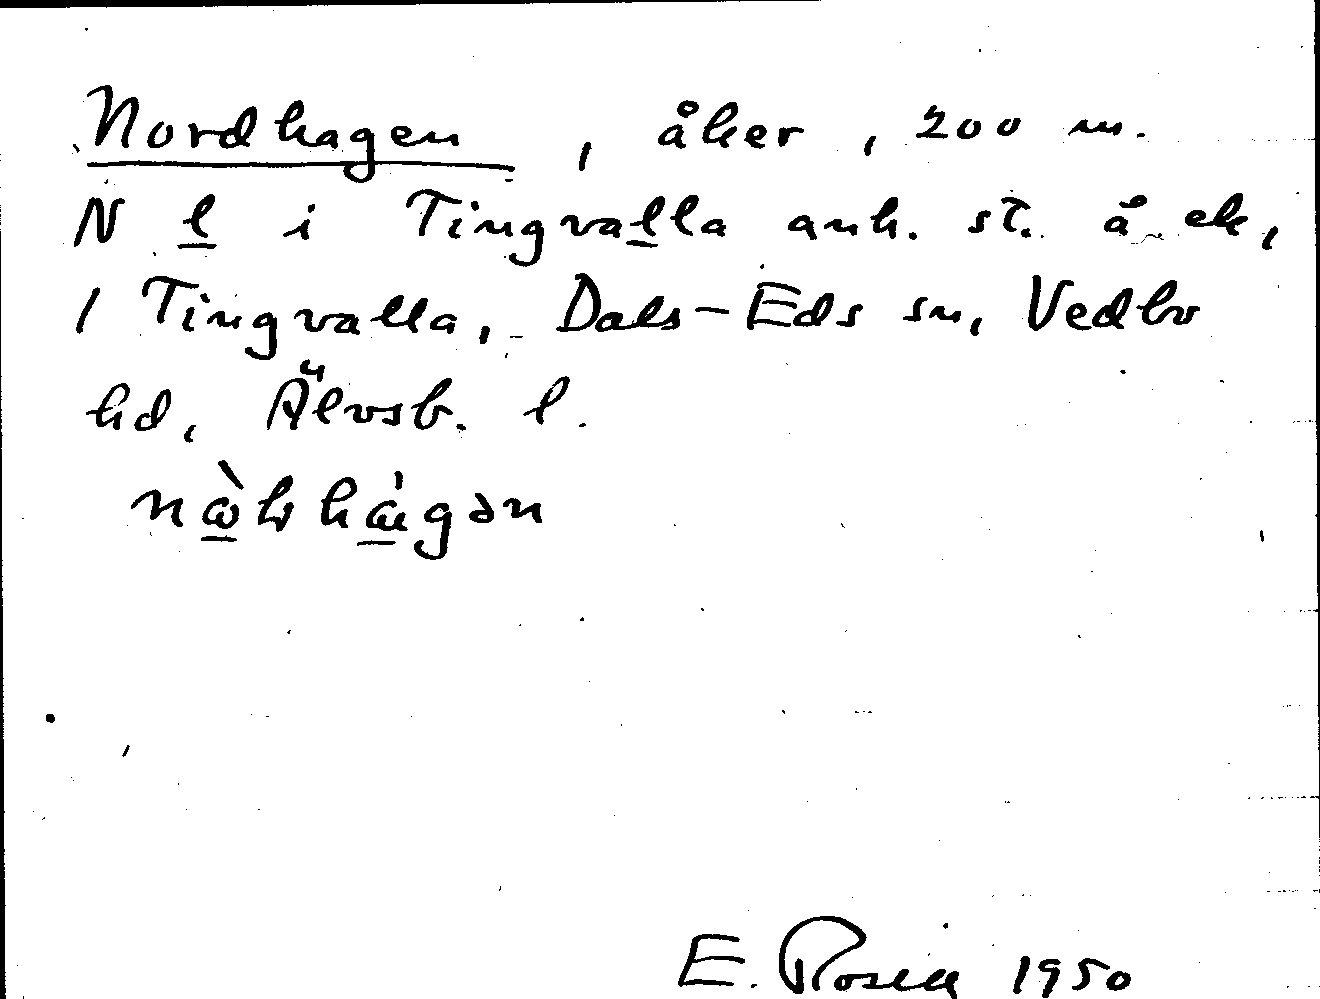 Nordhagen, åker, 200 m.
N l i Tingvalla anh. st. å ek,
1 Tingvalla, Dals-Eds sn, Vedbo
hd, Älvsb. l.
E. Rosén 1950